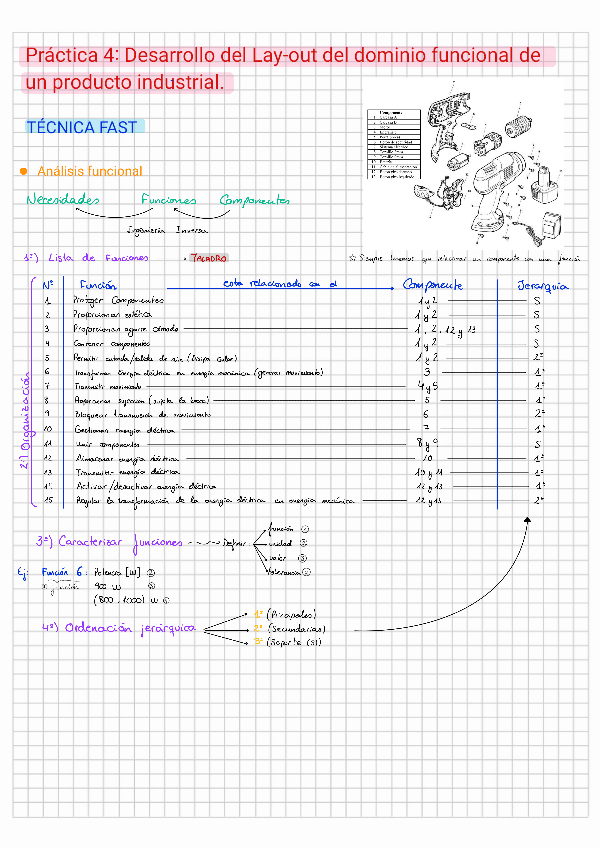 Práctica 4: Desarrollo del Lay-out del dominio funcional de
un producto industrial.
TÉCNICA FAST
Análisis funcional
Necesidades Funciones Componentes
Ingeniería Inversa
1º) Lista de Funciones • TALADRO
☆ Siempre tenemos que relacionar un componente con una función
Componente
Nº Función esta relacionado con el Componente Jerarquía
2º) Organización
1 Proteger Componentes 1 y 2 S
2 Proporcionar estética 1 y 2 S
3 Proporcionar agarre cómodo 1, 2, 12 y 13 S
4 Contener componentes 1 y 2 S
5 Permitir entrada/salida de aire (Disipa calor) 1 y 2 2º
6 Transformar Energía eléctrica en energía mecánica (generar movimiento) 3 1º
7 Transmitir movimiento 4 y 5 1º
8 sujeción (sujeta la broca) 5 1º
9 Bloquear transmisión de movimiento 6 2º
10 Gestionar energía eléctrica 7 1º
11 Unir componentes 8 y 9 S
12 Almacenar energía eléctrica 10 1º
13 Transmitir energía eléctrica 10 y 11 1º
14 Activar/desactivar energía eléctrica 12 y 13 1º
15 Regular la transformación de la energía eléctrica en energía mecánica 12 y 13 2º
3º) Caracterizar funciones Definir función ①
unidad ②
valor ③
tolerancia ④
Ej: Función 6: Potencia [W] ②
900 W ③
(800, 1000) W ④
4º) Ordenación jerárquica 1º (Principales)
2º (Secundarias)
3º (Soporte (S))